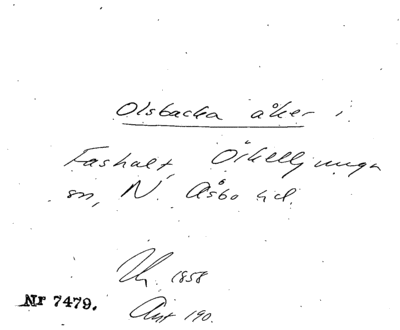 Olsbacka åker i
Fashalt, Örkelljunga
sn, N. Åsbo hd.
1858
Nr 7479.
Ant 190.